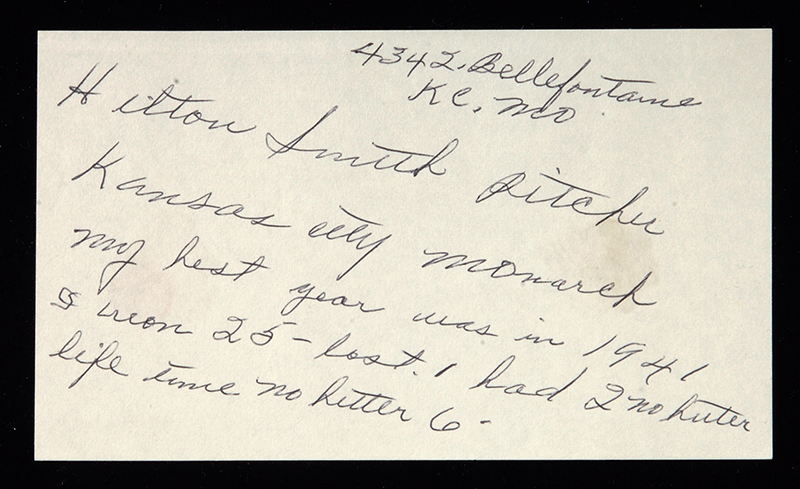 4342. Bellefontaine
KC. MO.
Hilton Smith Pitcher
Kansas City Monarch
my best year was in 1941
I won 25 - lost. 1 had 2 no hitter
life time no hitter 6-